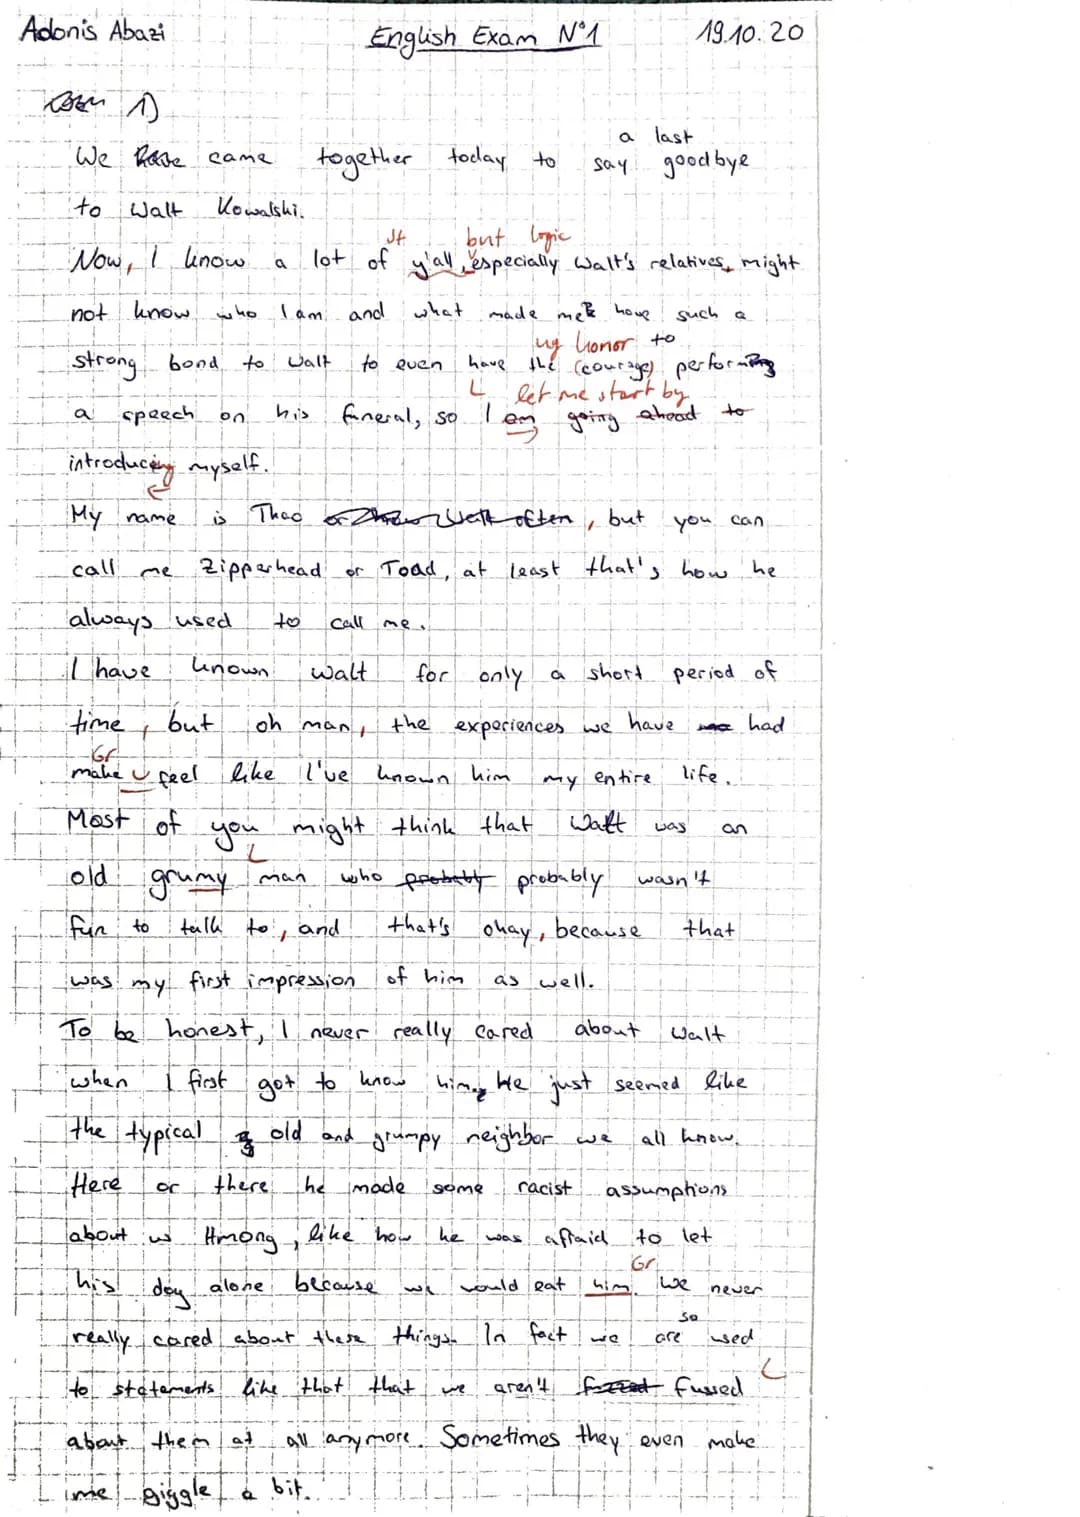 Adonis Abazi English Exam N°1 19.10.20
1)
a last
We came together today to say goodbye
to Walt Kowalski.
St but logic
Now, I know a lot of y'all, especially Walt's relatives, might
not know who I am and what made me have such a
ug honor to
strong bond to Walt to even have the (courage) performing
L let me start by
a speech on his funeral, so I am going ahead to
introducing myself.
My name is Thao or Walt often, but you can
call me Zipperhead or Toad, at least that's how he
always used to call me.
I have known Walt for only a short period of
time, but oh man, the experiences we have had
Gr
make feel like I've known him my entire life.
Most of you might think that Walt was an
L
old grumy man who probably probably wasn't
fun to talk to, and that's okay, because that
was my first impression of him as well.
To be honest, I never really cared about Walt
when I first got to know him. He just seemed like
the typical old and grumpy neighbor we all know.
Here or there he made some racist assumptions
about us Hmong, like how he was afraid to let
Gr
his dog alone because we would eat him. We never
so
really cared about these things. In fact we are used
L
to statements like that that we aren't fussed
about them at all anymore. Sometimes they even make
me giggle a bit.